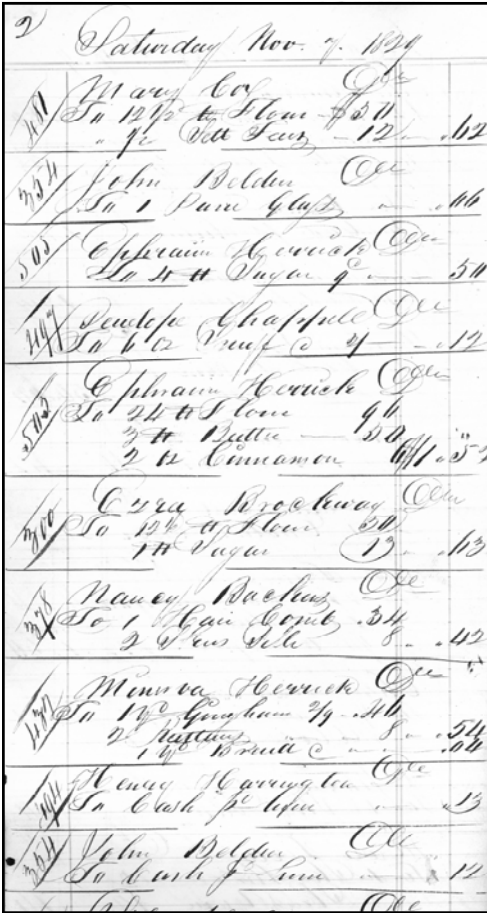 2
Saturday Nov. 7. 1829
481 Mary Coy Dr
To 12 1/2 lb Flour $50
" 12 .62
354 John Belden Dr
To 1 Pane Glass .06
505 Ephraim Herrick Dr
To 4 lb Sugar 50
497 Penelope Chappell Dr
To 6 oz Snuff c 12
505 Ephraim Herrick Dr
To 24 lb Flour 90
3 lb Butter 50
2 oz Cinnamon
300 Ezra Brockway Dr
To 12 1/2 lb Flour 50
1 lb Sugar 13 .63
Nancy Backus Dr
To 1 Hair Comb .34
2 8 .42
Minerva Herrick Dr
To Gingham 2/9 .46
2 8 .54
1 Braid c .04
194 Henry Harrington Dr
To Cash pd him .13
354 John Belden Dr
To Cash pd him 12